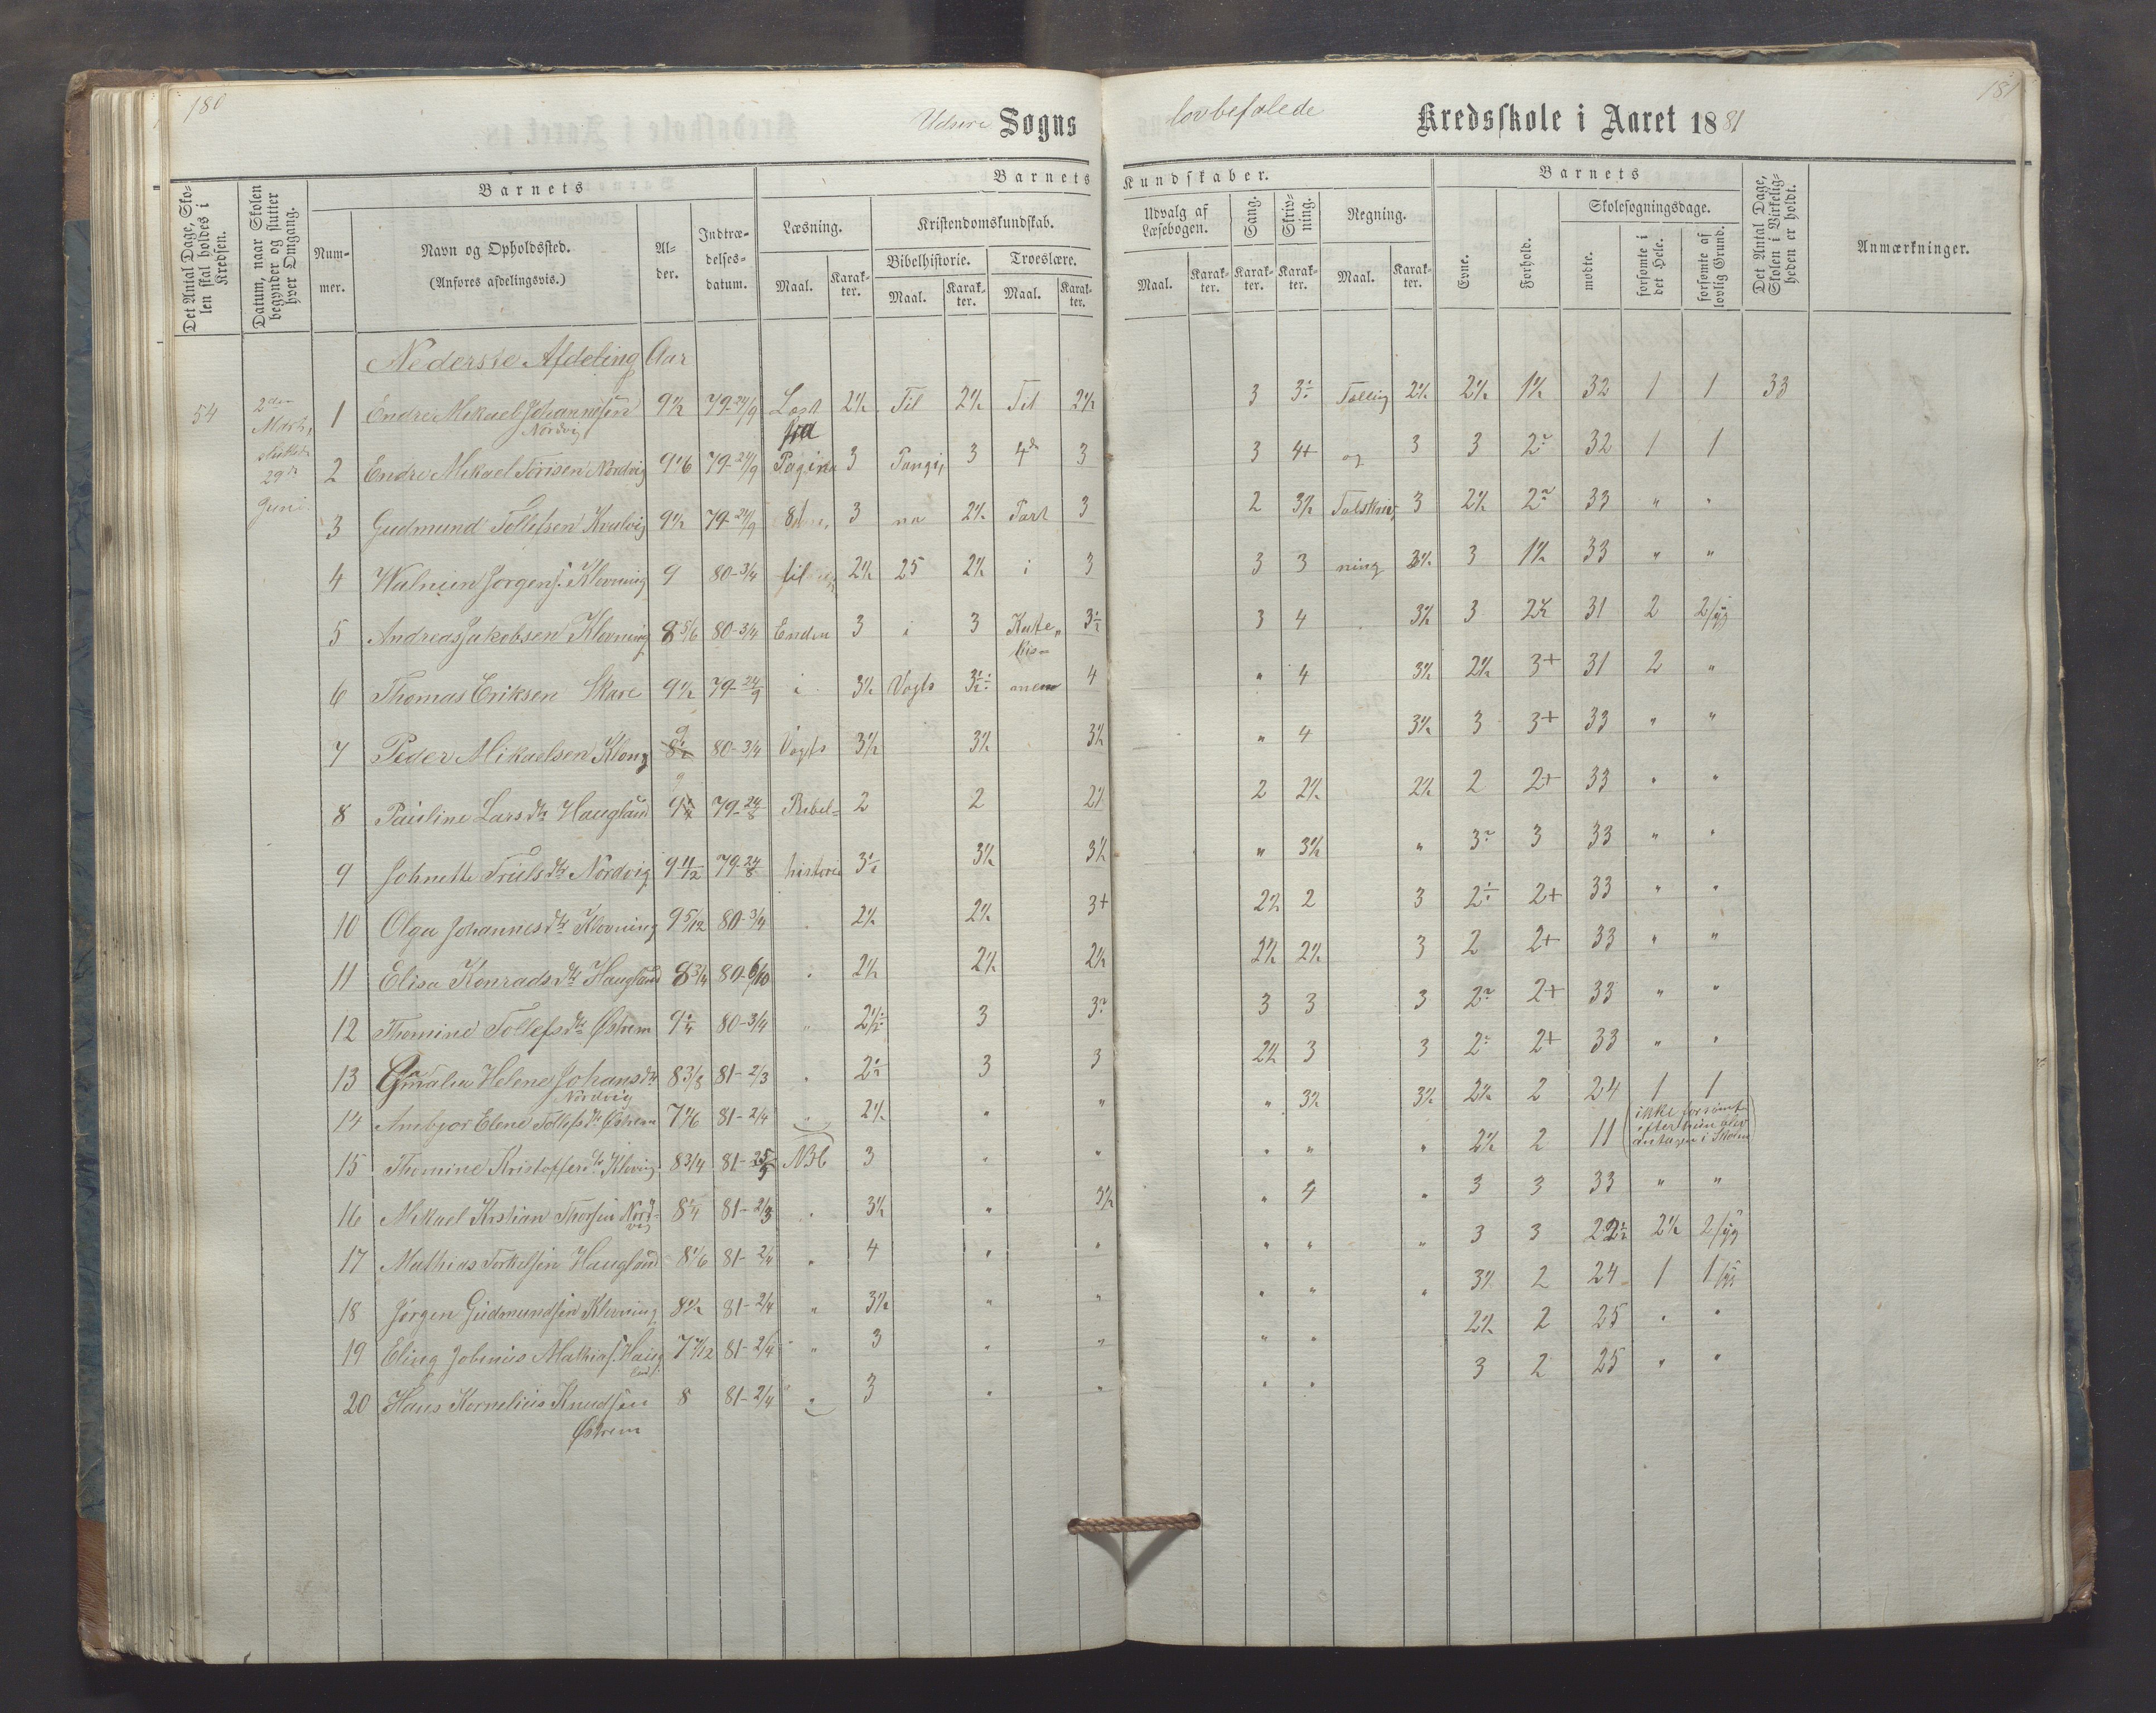 180
181
Udsire Sogns lovbefalede Kredsskole i Aaret 1881
Det Antal Dage, Sko-
len skal holdes i
Kredsen.
Datum, naar Skolen
begynder og slutter
hver Omgang.
Barnets
Num-
mer.
Navn og Opholdssted.
(Anføres afdelingsvis.)
Al-
der.
Indtræ-
delses-
datum.
Barnets Kundskaber.
Læsning.
Maal. Karak-
ter.
Kristendomskundskab.
Bibelhistorie.
Maal. Karak-
ter.
Troeslære.
Maal. Karak-
ter.
Udvalg af
Læsebogen.
Maal. Karak-
ter.
Sang.
Karak-
ter.
Skriv-
ning.
Karak-
ter.
Regning.
Maal. Karak-
ter.
Barnets
Evne.
Forhold.
Skolesøgningsdage.
mødte.
forsømte i
det Hele.
forsømte af
lovlig Grund.
Det Antal Dage,
Skolen i Virkelig-
heden er holdt.
Anmærkninger.
Nederste Afdeling Aar
54
2den
Marts,
sluttede
29de
Juni
1 Endre Mikael Johannesen 9½ 79-24/9 Læst 2½ Til 2½ Til 2½ 3 3÷ Tælling 2½ 2½ 1½ 32 1 1 33
Nordvig fra
2 Endre Mikael Torisen Nordvig 9 1/6 79-24/9 Pagina 3 Pangi, 3 4de 3 3 4+ og 3 3 2÷ 32 1 1
3 Gudmund Tollefsen Kvalvig 9½ 79-24/9 81 3 na 2½ Part 3 2 3½ Talskriv, 3 2½ 2÷ 33 " "
4 Jorgens. Klovning 9 80-3/4 til 2½ 25 2½ i 3 3 3 ning 3½ 3 1½ 33 " "
5 Andreas Jakobsen Klovning 8 5/6 80-3/4 Enden 3 i 3 Kate, 3½ 3 4 3½ 3 2½ 31 2 2/syg
kis-
6 Thomas Eriksen Skare 9½ 79-24/9 i 3½ Vogts 3½÷ men 4 " 4 3½ 2½ 3+ 31 2 "
7 Peder Mikaelsen Klovng 9 80-3/4 Vogts 3½ 3½ 3½ " 4 3½ 3 3+ 33 " "
8 Pauline Larsdtr Haugland 9 79-24/8 Bibel- 2 2 2½ 2 2½ 2½ 2 2+ 33 " "
9 Johnette Trulsdtr Nordvig 9 11/12 79-24/8 historie 3½ 3½ 3½ " 3½ " 3÷ 3 33 " "
10 Olga Johannesdtr Klovning 9 5/12 80-3/4 " 2½ 2½ 3+ 2½ 2 3 2÷ 2+ 33 " "
11 Elisa Konradsdtr Haugland 8 3/4 80-6/10 " 2½ 2½ 2½ 2½ 2½ 3 2 2+ 33 " "
12 Thomine Tollefsdtr Østrem 9¼ 80-3/4 " 2½÷ 3 3÷ 3 3 3 2÷ 2+ 33 " "
13 Amalia Helene Johansdtr 8 3/8 81-2/3 " 2½ 3 3 2½ 3 3 2÷ 2+ 33 " "
Nordvig
14 Ambjor Elene Tollefsdtr Østrem 7 1/6 81-2/4 " 2½ " " " 3½ 3½ 2½ 2 24 1 1
15 Thomine Kristoffersdtr Klovnig 8 3/4 81-25/5 ABC 3 " " " " " 2½ 2 11 ikke forsømt
efter hun blev
antagen i Skolen
16 Mikael Kristian Thorsen Nord- 8¼ 81-2/3 " 3½ " 3½ " 4 " 3 3 33 " "
vig
17 Mathias Torkelsen Haugland 8 1/6 81-2/4 " 4 " " " " " 3 3 22½ 2½ 2/syg
18 Jørgen Gudmundsen Klovning 8½ 81-2/4 " 3½ " " " " " 3½ 2 24 1 1/syg
19 Eling Johnnius Mathias. Haug 7 7/12 81-2/4 " 3 " " " " 2½ 2 25 " "
land.
20 Hans Kornelius Knudsen 8 81-2/4 " 3 " " " " 3 2 25 " "
Østrem